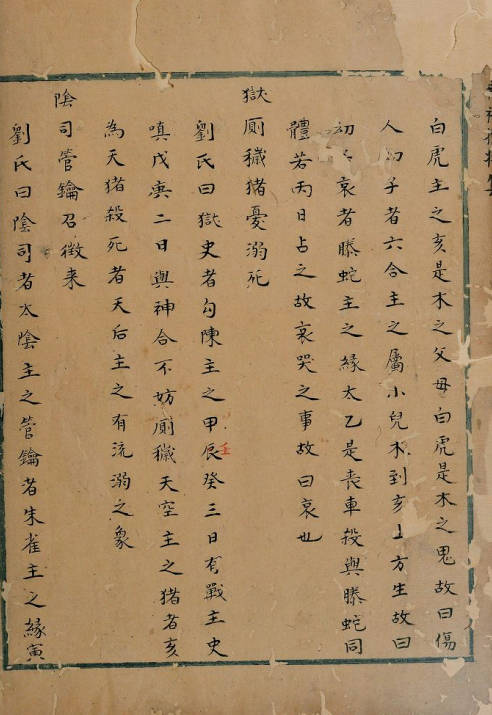 白虎主之亥是木之父母白虎是木之鬼故曰傷
人幼子者六合主之屬小兒木到亥上方生故曰
初 哀者螣蛇主之緣太乙是喪車投與螣蛇同
體若丙日占之故哀哭之事故曰哀也
獄厠穢豬憂溺死
劉氏曰獄史者勾陳主之甲辰癸三日有戰主史
壬
嗔戊庚二日與神合不妨厠穢天空主之猪者亥
為天猪殺死者天后主之有流溺之象
陰司管鑰召徵来
劉氏曰陰司者太陰主之管鑰者朱雀主之緣寅